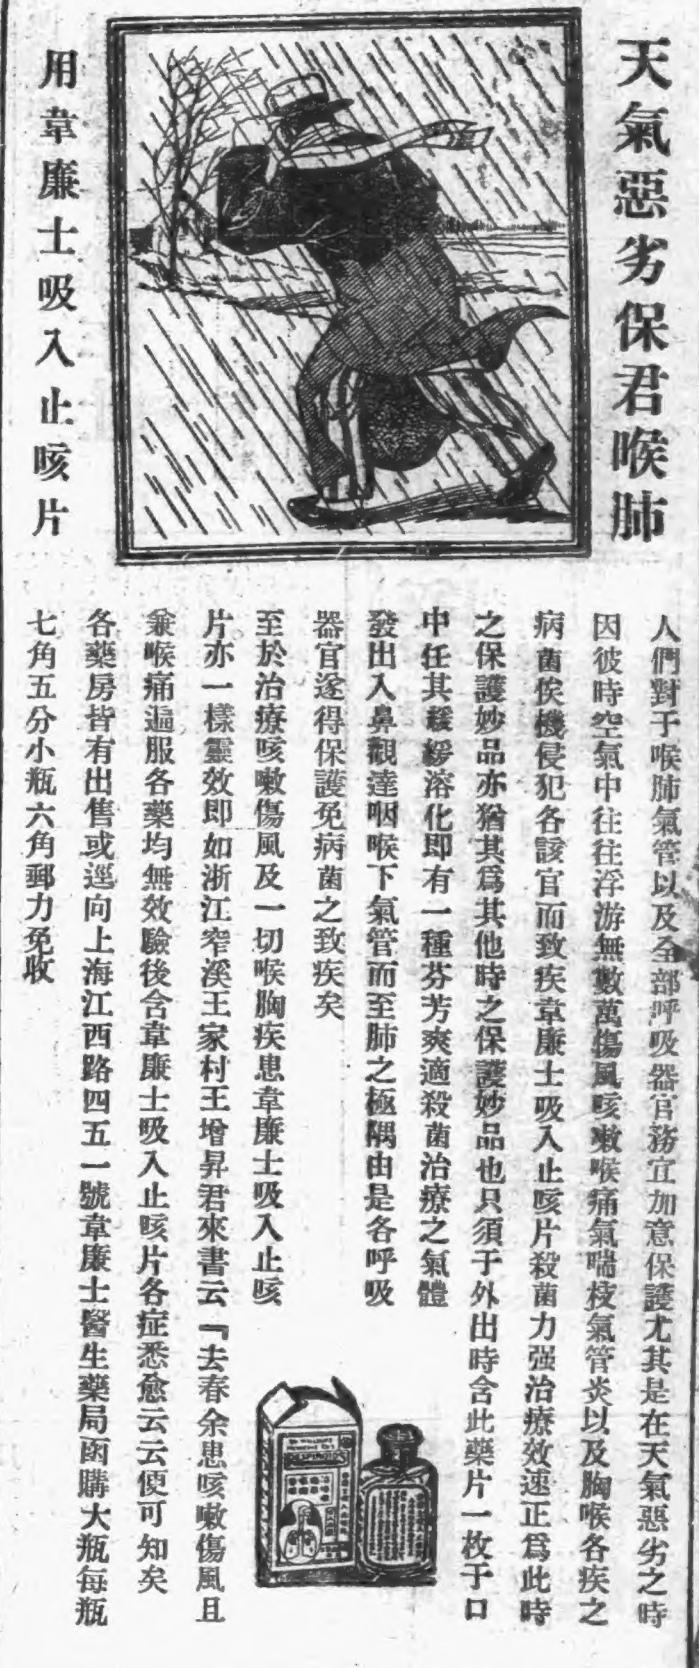 天氣惡劣保君喉肺
用韋廉士吸入止咳片
人們對于喉肺氣管以及全部呼吸器官務宜加意保護尤其是在天氣惡劣之時
因彼時空氣中往往浮游無數萬傷風咳嗽喉痛氣喘枝氣管炎以及胸喉各疾之
病菌俟機侵犯各該官而致疾韋廉士吸入止咳片殺菌力强治療效速正爲此時
之保護妙品亦猶其爲其他時之保護妙品也只須于外出時含此藥片一枚于口
中任其緩緩溶化即有一種芬芳爽適殺菌治療之氣體
發出入鼻觀達咽喉下氣管而至肺之極隅由是各呼吸
器官遂得保護免病菌之致疾矣
至於治療咳嗽傷風及一切喉胸疾患韋廉士吸入止咳
片亦一樣靈效即如浙江窄溪王家村王增昇君來書云『去春余患咳嗽傷風且
兼喉痛遍服各藥均無效驗後含韋廉士吸入止咳片各症悉愈云云便可知矣
各藥房皆有出售或逕向上海江西路四五一號韋廉士醫生藥局函購大瓶每瓶
七角五分小瓶六角郵力免收